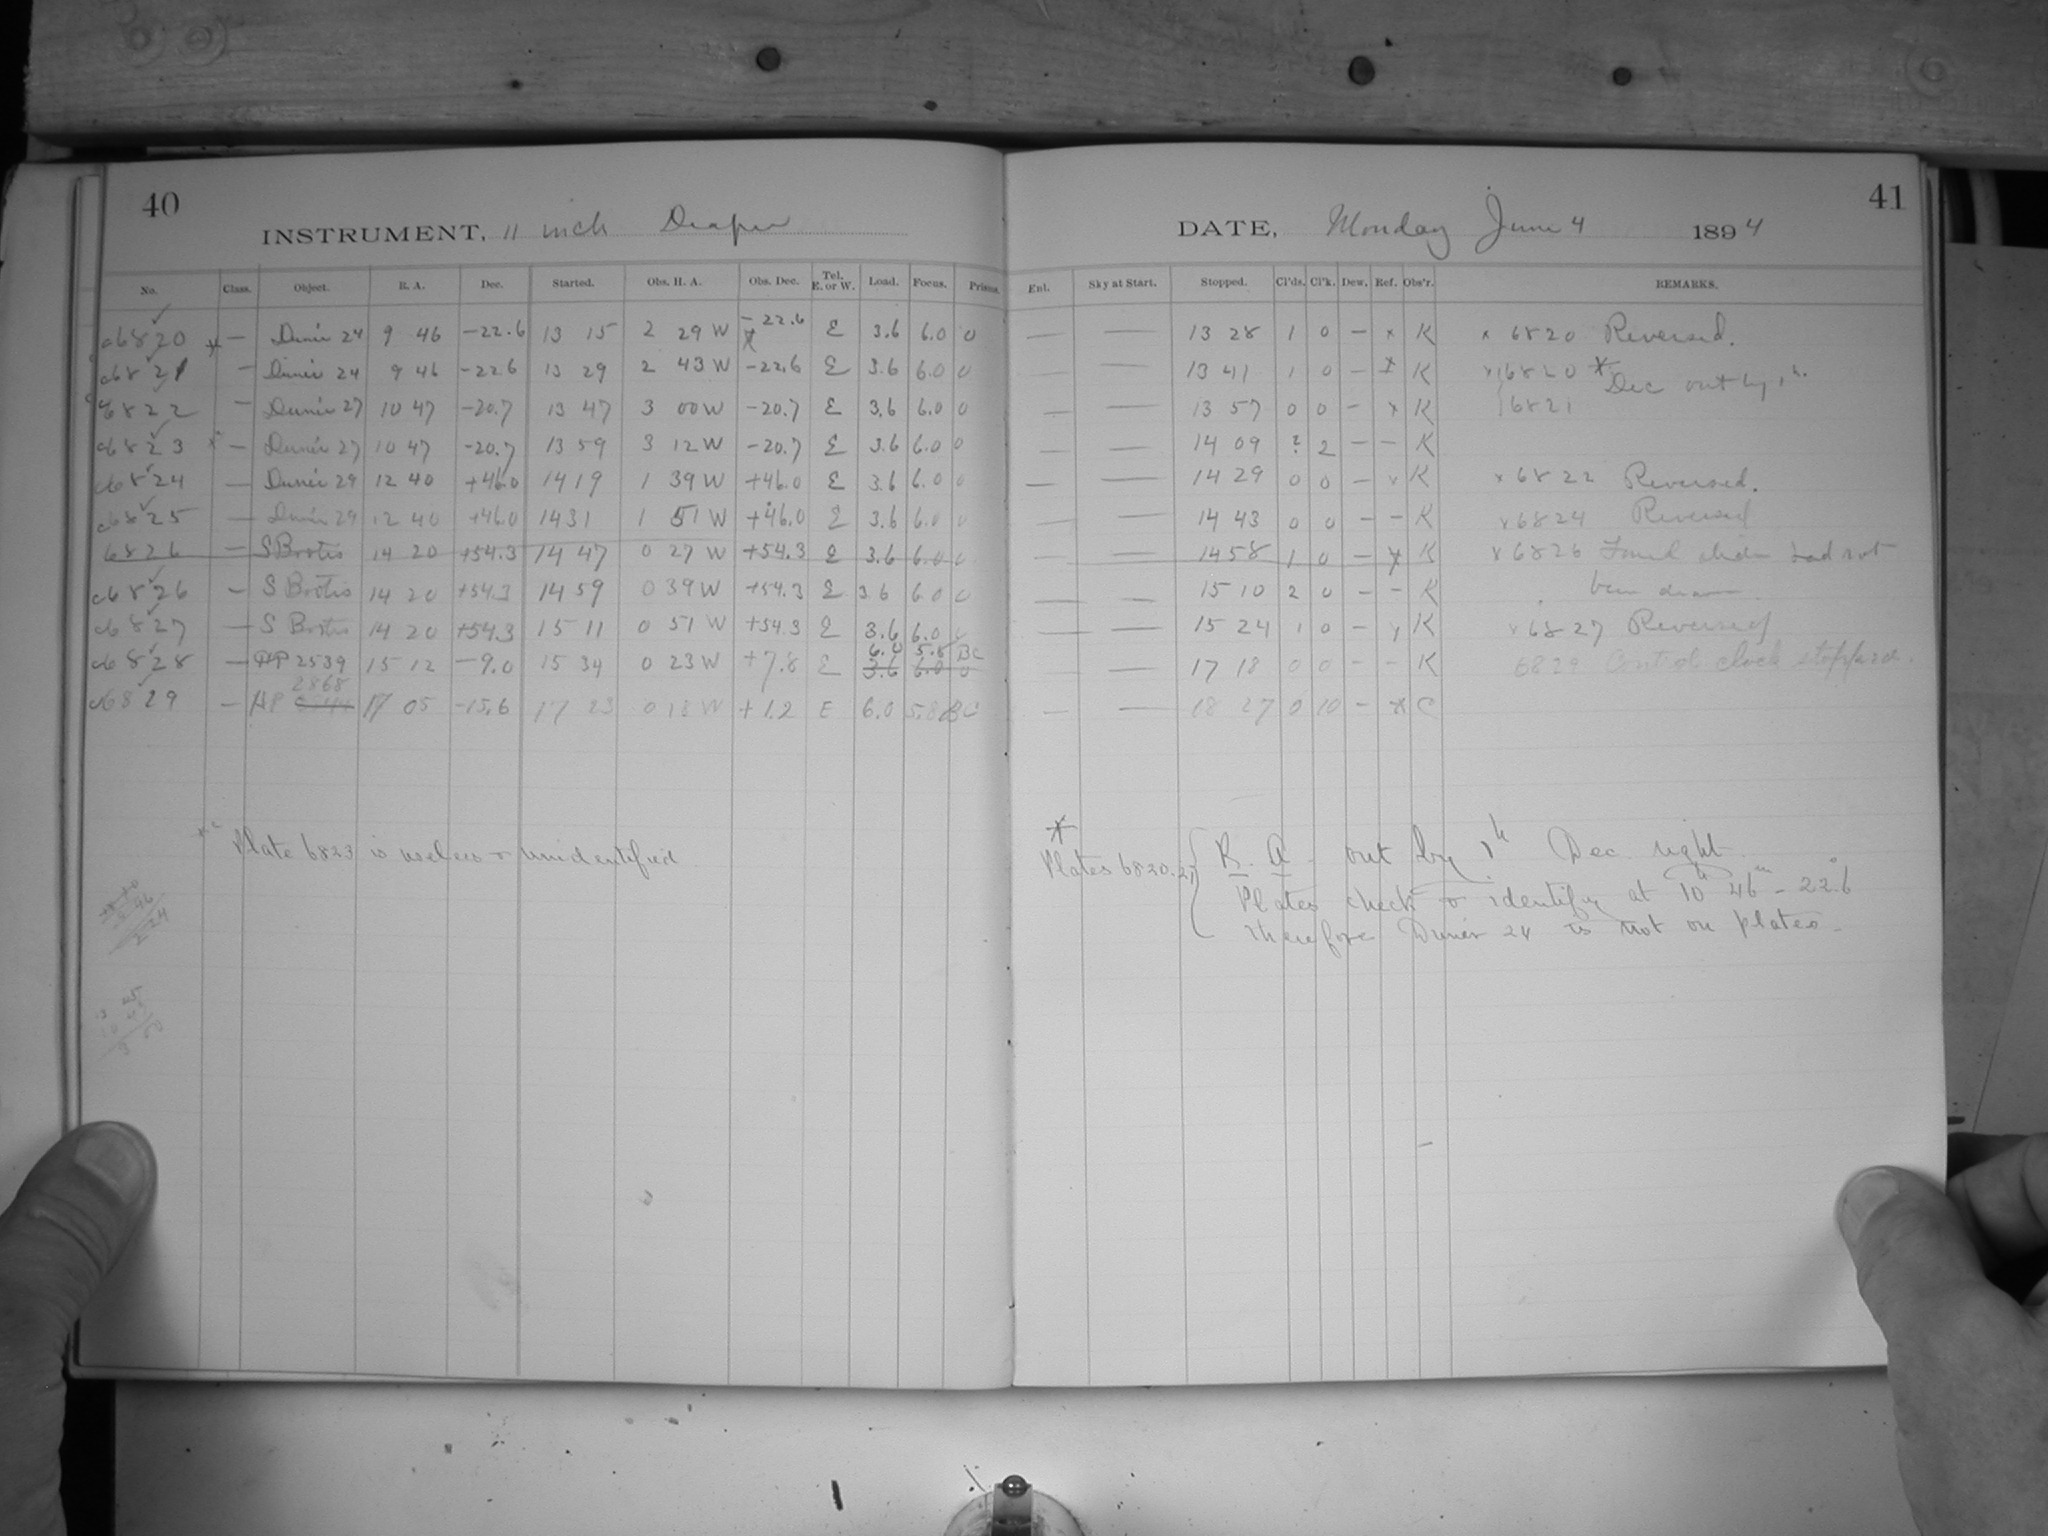 40
INSTRUMENT, 11 inch Draper
No. Class. Object. R. A. Dec. Started. Obs. H. A. Obs. Dec. Tel. E. or W. Load. Focus. Prisms.
c6820 — Dunér 24 9 46 -22.6 13 15 2 29 W -22.6 E 3.6 6.0 0
c6821 — Dunér 24 9 46 -22.6 13 29 2 43 W -22.6 E 3.6 6.0 0
c6822 — Dunér 27 10 47 -20.7 13 47 3 00 W -20.7 E 3.6 6.0 0
c6823 — Dunér 27 10 47 -20.7 13 59 3 12 W -20.7 E 3.6 6.0 0
c6824 — Dunér 29 12 40 +46.0 14 19 1 39 W +46.0 E 3.6 6.0 0
c6825 — Dunér 29 12 40 +46.0 14 31 1 51 W +46.0 E 3.6 6.0 0
6826 — S Bootis 14 20 +54.3 14 47 0 27 W +54.3 E 3.6 6.0 0
c6826 — S Bootis 14 20 +54.3 14 59 0 39 W +54.3 E 3.6 6.0 0
c6827 — S Bootis 14 20 +54.3 15 11 0 51 W +54.3 E 3.6 6.0 0
6.0 5.8 BC
c6828 — HP 2539 15 12 -9.0 15 34 0 23 W +7.8 E 3.6 6.0 0
2868
c6829 — HP 17 05 -15.6 17 23 0 18 W +1.2 E 6.0 5.8 BC
Plate 6823 is useless & unidentified
41
DATE, Monday June 4 1894
Ent. Sky at Start. Stopped. Cl'ds. Cl'k. Dew. Ref. Obs'r. REMARKS.
— — 13 28 1 0 — x K x 6820 Reversed.
— — 13 41 1 0 — x K x 6820 * Dec out by 1h.
— — 13 57 0 0 — x K 6821
— — 14 09 ? 2 — — K
— — 14 29 0 0 — x K x 6822 Reversed.
— — 14 43 0 0 — — K x 6824 Reversed
— — 14 58 1 0 — x K x 6826 Found slide had not
— — 15 10 2 0 — — K been drawn.
— — 15 24 1 0 — x K x 6827 Reversed
— — 17 18 0 0 — — K 6829 Control clock stopped.
— — 18 27 0 10 — * C
*
Plates 6820.21 { R. A. out by 1h Dec. right.
Plates check & identify at 10h 46m -22.6°
therefore Dunér 24 is not on plates.